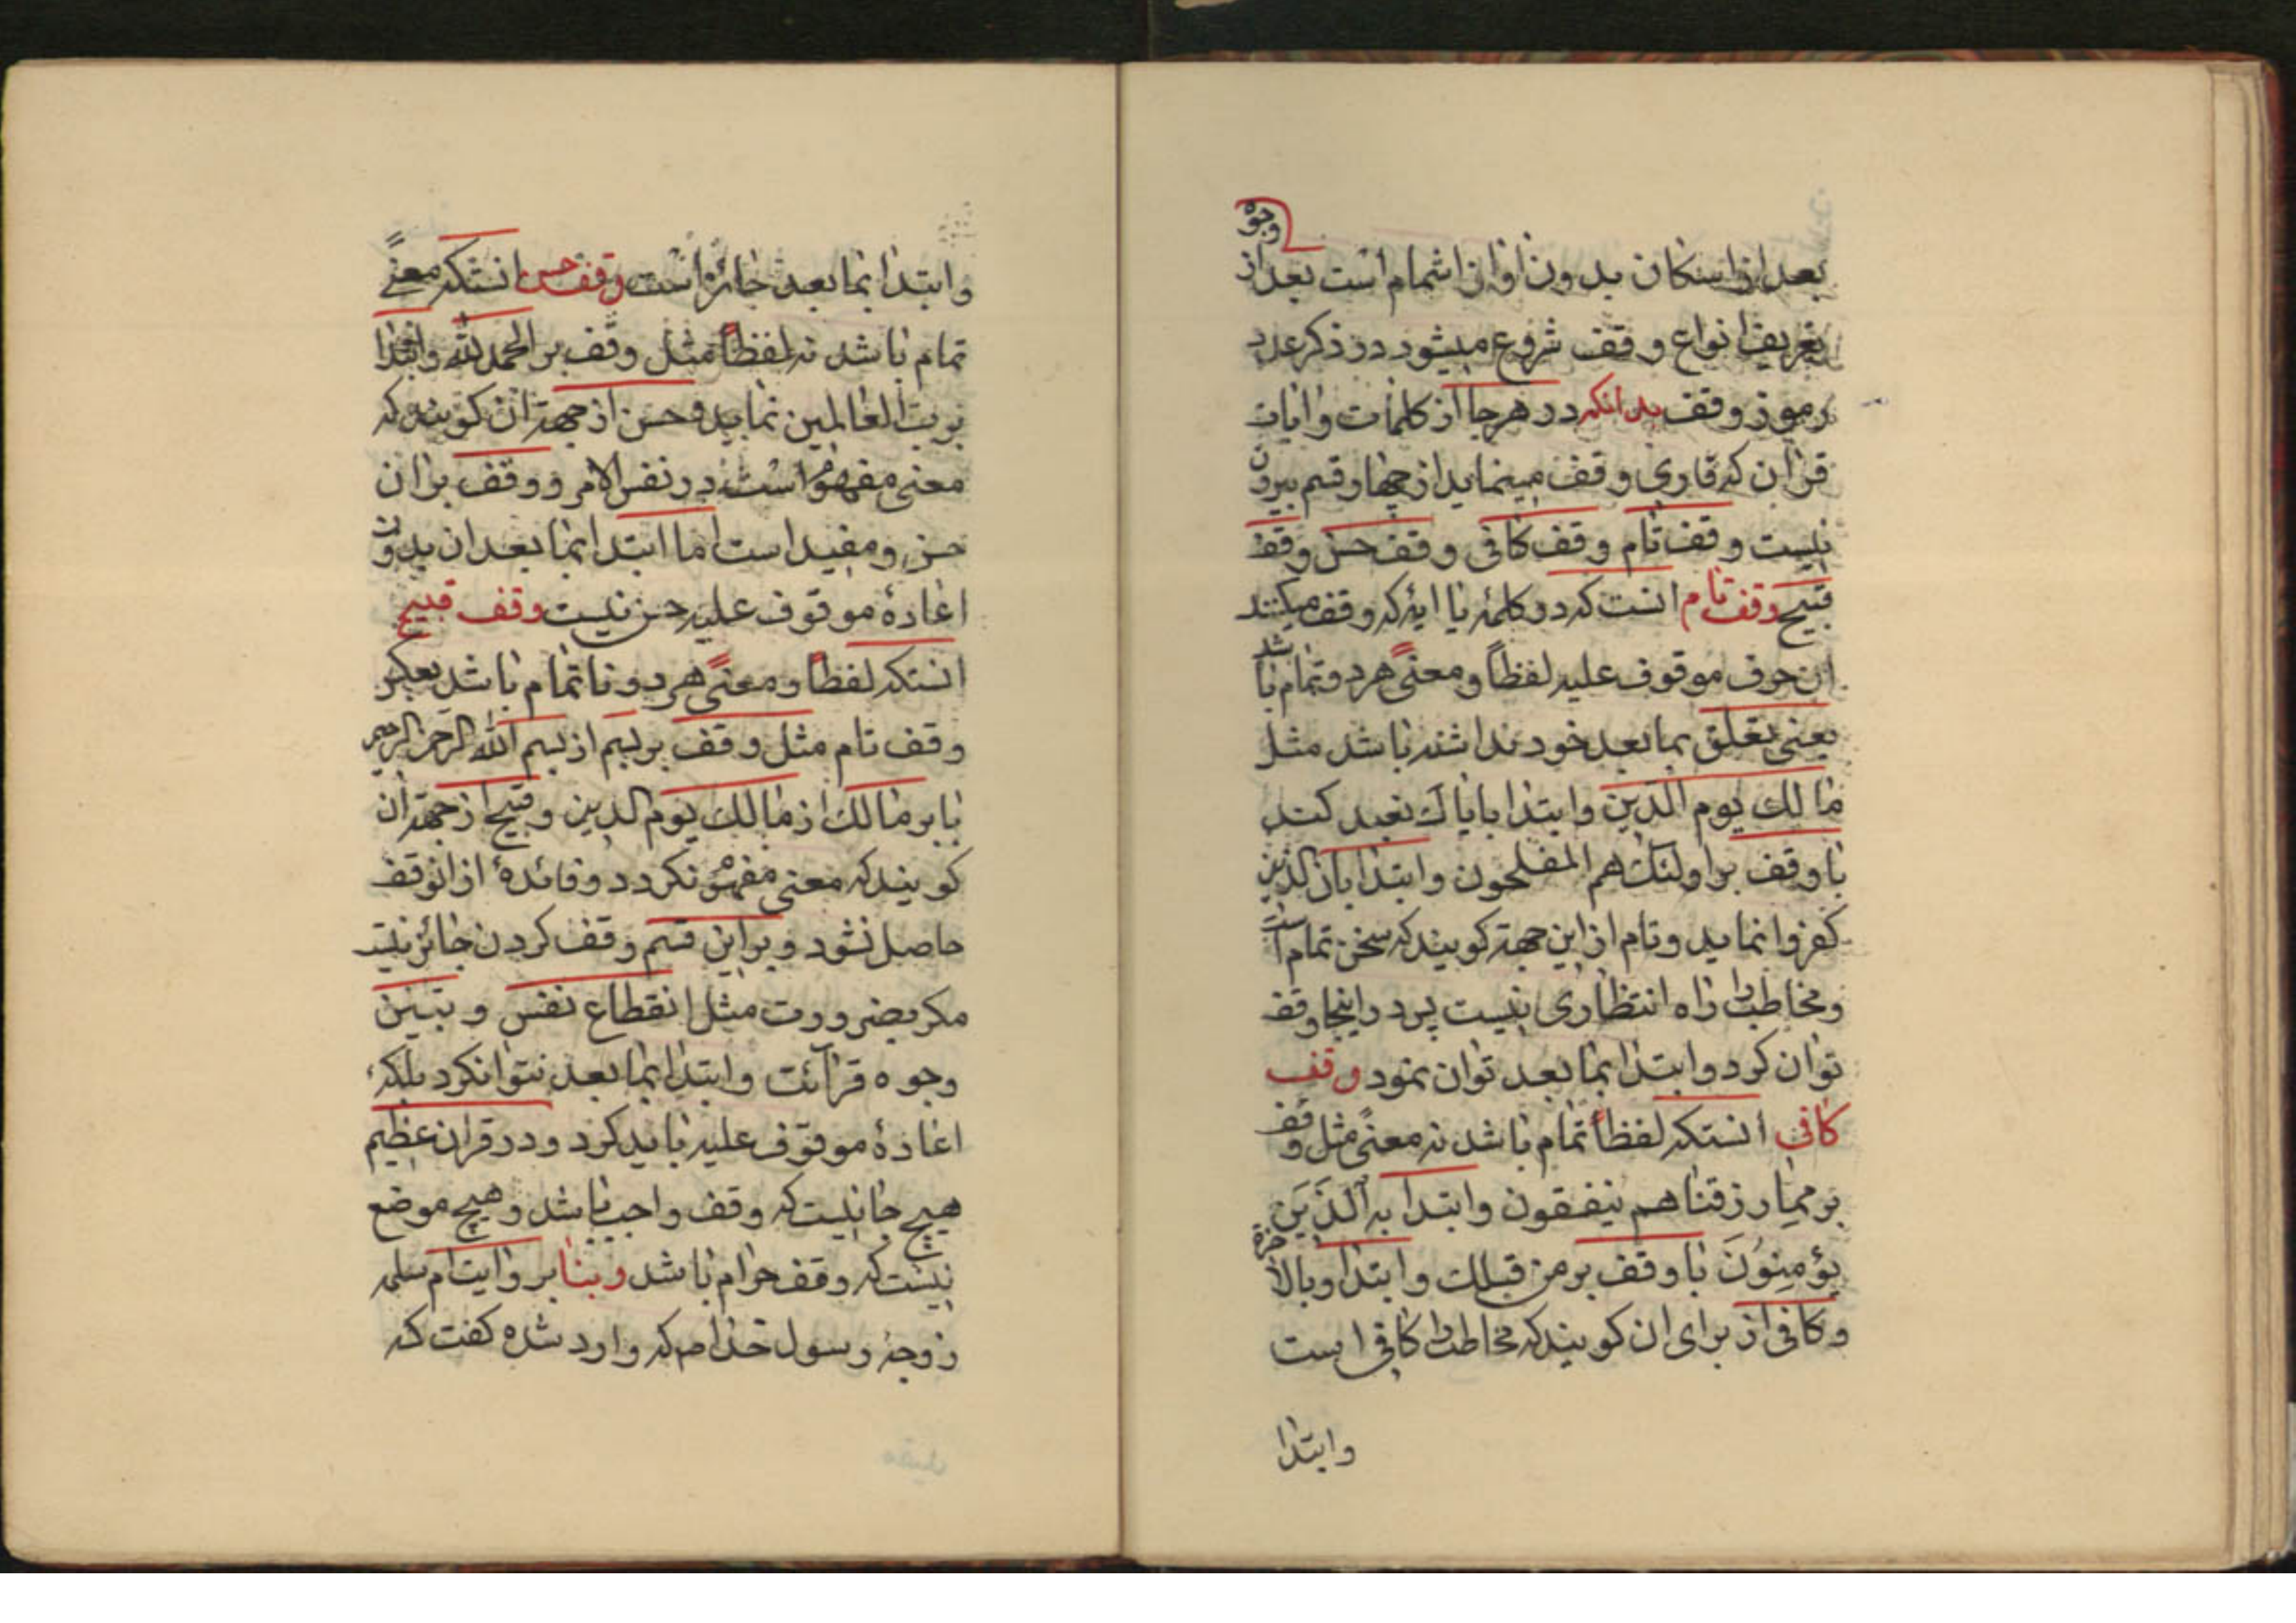 وبو
بعد از اسکان بدون اوان اشمام است بعد از
تعریف انواع وقف شروع میشود در ذکر عدد
رموز وقف بدانکه در هرجا از کلمات و ایات
قران که قاری وقف مینماید از چهار قسم بیرون
نیست وقف تام وقف کافی وقف حسن وقف
قبیح وقف تام انست که در کلمهٔ یا ایهٔ که وقف میکنند
ان حرف موقوف علیه لفظاً و معنیً هردو تمام باشد
یعنی تعلق بما بعد خود نداشته باشد مثل
مالك یوم الدین وابتدا بایاك نعبد کند
یا وقف بر اولئك هم المفلحون وابتدا بان الذین
کفروا نماید و تام از این جهة کویند که سخن تمام است
و مخاطب را راه انتظاری نیست پس در اینجا وقف
توان کرد و ابتدا بما بعد توان نمود وقف
کافی انستکه لفظاً تمام باشد نه معنیً مثل وقف
بر مما رزقناهم ینفقون وابتدا به اَلَّذینَ
یؤمِنُونَ یا وقف بر من قبلك وابتدا وبالاخرة
و کافی از برای ان کویند که مخاطب را کافی است
وابتدا
وابتدا بما بعد جائز است وقف حسن انستکه معنیً
تمام باشد نه لفظاً مثل وقف بر الحمد لله وابتدا
برب العالمین نماید و حسن از جهة ان کویند که
معنی مفهوم است در نفس الامر و وقف بران
حسن و مفید است اما ابتدا بما بعد ان بدون
اعادهٔ موقوف علیه حسن نیست وقف قبیح
انستکه لفظاً و معنیً هردو ناتمام باشد بعکس
وقف تام مثل وقف بر بسم از بسم الله الرحمن الرحیم
یا بر مالك از مالك یوم الدین و قبیح از جهة ان
کویند که معنی مفهوم نکردد و فائدهٔ از انوقف
حاصل نشود و براین قسم وقف کردن جائز نیست
مکر بضرورت مثل انقطاع نفس و تبیین
وجوه قرائت وابتدا بما بعد نتوانکرد بلکه
اعادهٔ موقوف علیه باید کرد و در قران عظیم
هیچ جا نیست که وقف واجب باشد و هیچ موضع
نیست که وقف حرام باشد و بنا بر روایت ام سلمه
زوجهٔ رسول خدا ص که وارد شده کفت که